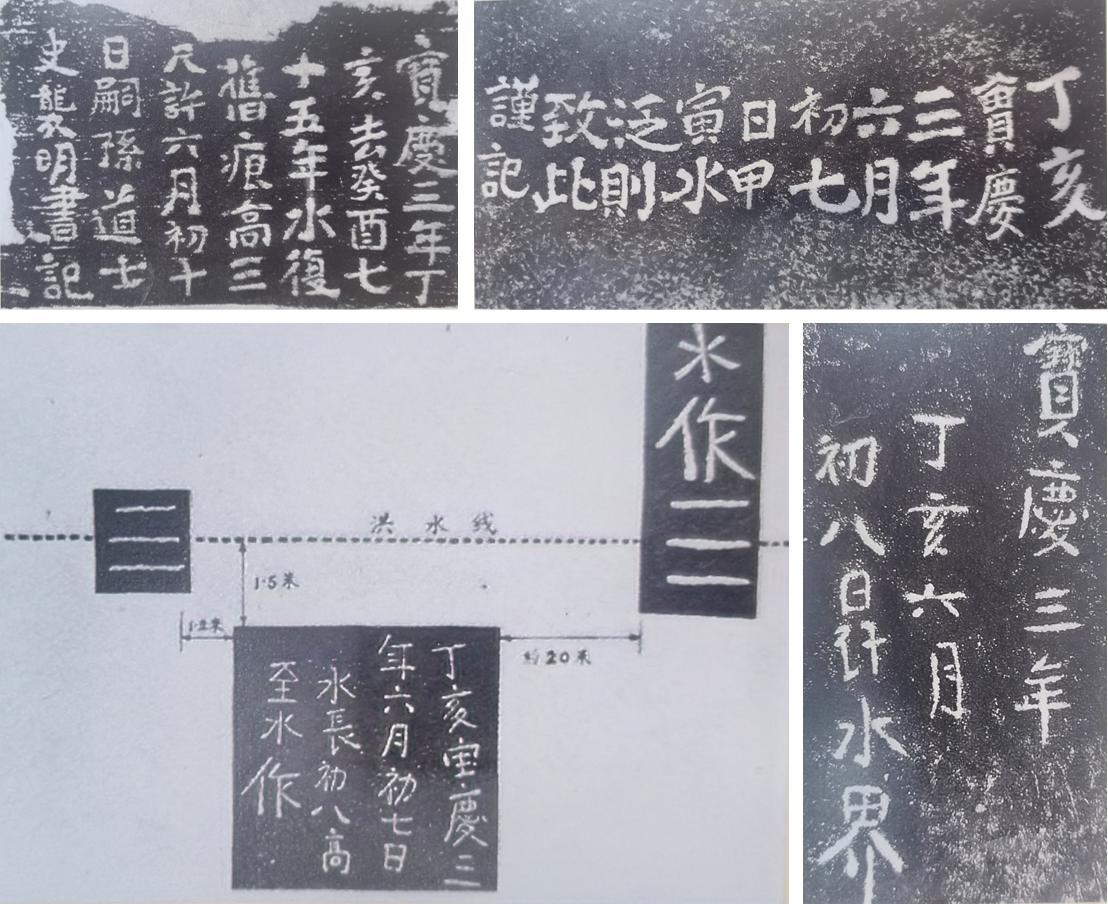 寶慶三年丁
亥去癸酉七
十五年水復
舊痕高三
尺許六月初十
日嗣孫道士
史襲明書記
丁亥
寶慶
三年
六月
初七
日甲
寅水
泛則
致此
謹記
水作三
三
洪水线
1·5米
1·2米
约20米
丁亥宝慶三
年六月初七日
水長初八高
至水作
寶慶三年
丁亥六月
初八日許水界